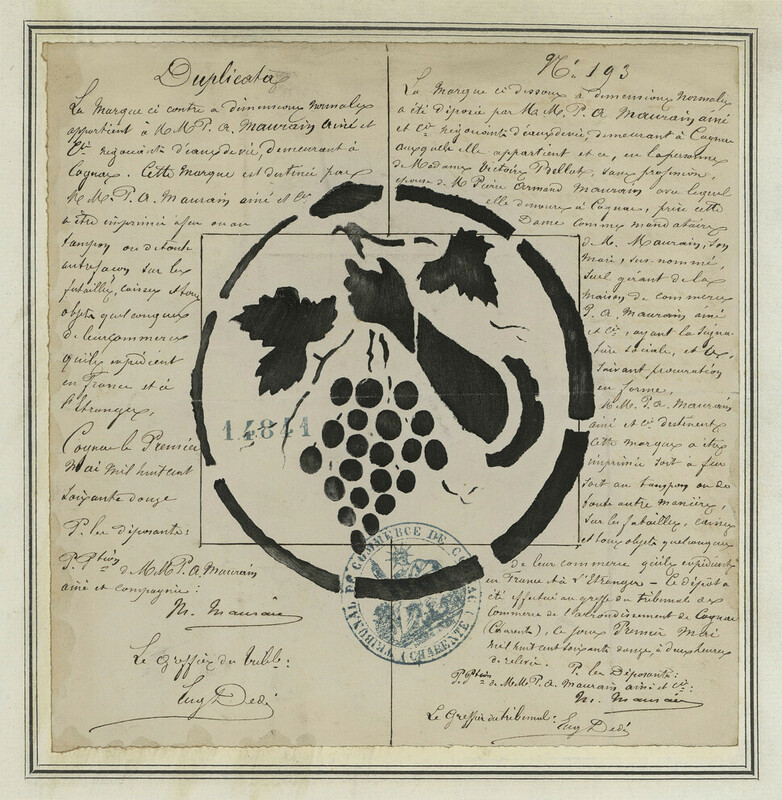 Duplicata
La Marque ci contre à dimensions Normales
appartient à M.M. P. A. Maurain ainé et
Cie négociants d'eaux de vie, demeurant à
Cognac. Cette Marque est destinée par
M.M. P. A. Maurain ainé et Cie
à être imprimée à feu ou au
tampon ou de toute
autre façon sur les
futailles, caisses et tous
objets quelconques
de leur commerce
qu'ils expédient
en France et à
l'étranger.
Cognac le Premier
Mai Mil huit cent
soixante douze
P. les déposants:
P. Ption de M.M. P. A. Maurain
ainé et compagnie:
M. Maurain
Le Greffier du tribl:
Eug Dedé
No. 193
La Marque ci dessous à dimensions normales
a été déposée par M.M. P. A. Maurain ainé
et Cie négociants d'eaux de vie, demeurant à Cognac
auxquels elle appartient et ce, en la personne
de Madame Victoire Bellot, sans profession,
épouse de M. Pierre Armand Maurain avec lequel
elle demeure à Cognac, prise cette
Dame comme mandataire
de M. Maurain, son
Mari, sus-nommé,
seul gérant de la
Maison de commerce
P. A. Maurain ainé
et Cie, ayant la signa-
ture sociale, et ce,
suivant procuration
en forme,
M.M. P. A. Maurain
ainé et Cie destinent
cette marque à être
imprimée soit à feu
soit au tampon ou de
toute autre manière,
sur les futailles, caisses
et tous objets quelconques
de leur commerce qu'ils expédient
en France et à l'Etranger - Le dépôt a
été effectué au greffe du tribunal de
Commerce de l'arrondissement de Cognac
(Charente), le jour Premier Mai
Mil huit cent soixante douze, à deux heures
de relevée.
P. les Déposants:
P. Ption de M.M. P. A. Maurain ainé et Cie:
M. Maurain
Le Greffier du tribunal: Eug Dedé
14841
TRIBUNAL DE COMMERCE DE COGNAC (CHARENTE)